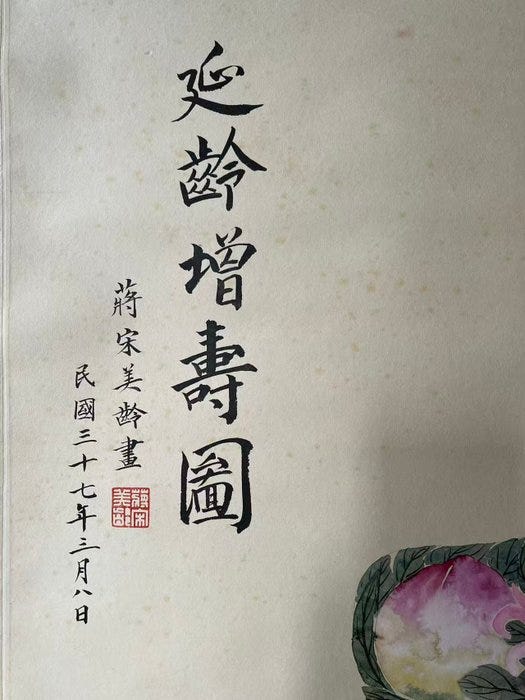 延齡增壽圖
蔣宋美齡畫
民國三十七年三月八日
蔣宋美齡